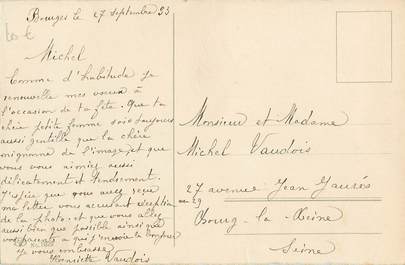 Bourges le 27 septembre 23
10 €
Michel
Comme d'habitude je
renouvelle mes vœux à
l'occasion de ta fête. Que ta
chère petite femme soit toujours
aussi gentille que la chère
mignonne de l'image, et que
vous vous aimiez aussi
délicatement et tendrement.
J'espère que vous avez reçu
ma lettre vous accusant réception
de la photo. et que vous allez
aussi bien que possible ainsi que
vos parents à qui j'envoie le bonjour
je vous embrasse
Henriette Vaudois
Monsieur et Madame
Michel Vaudois
27 avenue Jean Jaurès
ou 29
Bourg-la-Reine
Seine